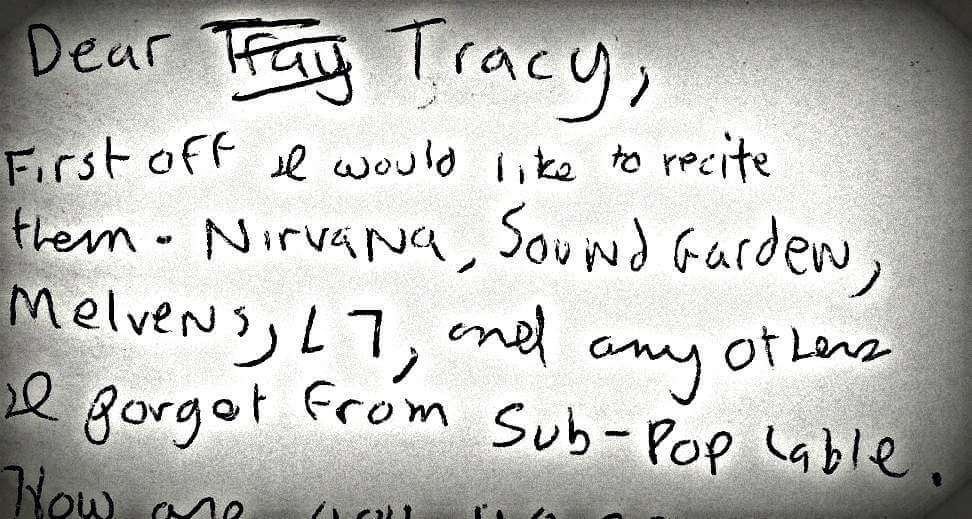 Dear Tracy,
First off I would like to recite
them - Nirvana, Sound Garden,
Melvens, L7, and any others
I forgot from Sub-Pop Lable.
How are you